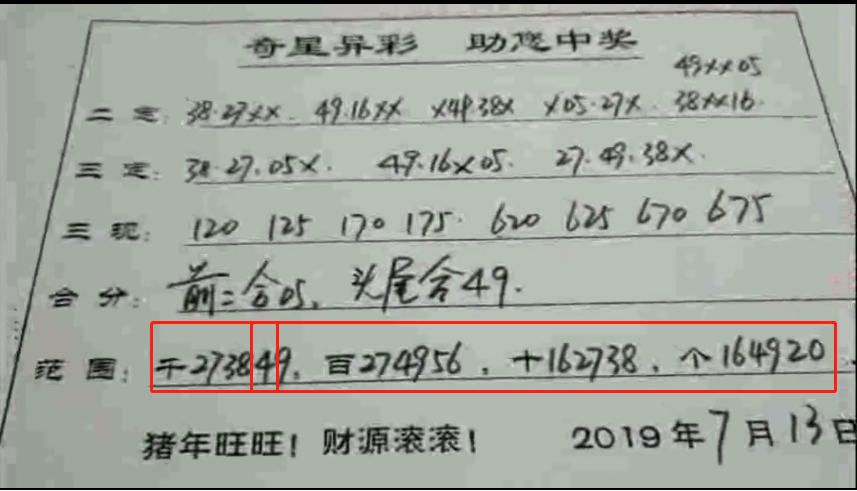 奇星异彩 助您中奖
49××05
二定: 38·27××. 49.16×× ×49.38× ×05·27×. 38××16.
三定: 38·27.05×. 49.16×05. 27.49.38×.
三现: 120 125 170 175. 620 625 670 675
合分: 前二合05. 头尾合49.
范围: 千273849, 百274956, 十162738, 个164920
猪年旺旺! 财源滚滚! 2019年7月13日